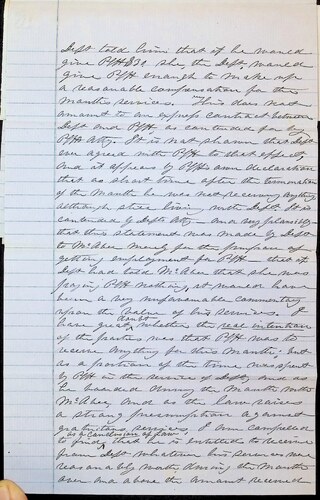 Deft told him that if he would
give Plff $30 she, the Deft, would
give Plff enough to make up
a reasonable compensation for the
months services. This does not
amount to an express contract between
Deft and Plff. as contended for by
Plffs Atty. It is not shown that Deft
ever agreed with Plff to that effect,
And it appears by Plffs own declaration
that as short time after the termination
of the Month he was not receiving anything
although still living with Deft. It is
contended by Defts Atty – and very plausibly –
that this statement was made by Deft
to McAbee merely for the purpose of
getting employment for Plff – that if
Deft had told McAbee that she was
paying Plff nothing, it would have
been a very unfavorable commentary
upon the value of his services. I
have great doubt whether the real intention
of the parties was that Plff was to
receive anything for this Month, but
as a portion of the time was spent
by Plff in the service of Deft, and as
he boarded during the Month with
McAbee, And as the law raises
a strong presumption against
gratuitous services, I am compelled
to find, as a conclusion of law, that he is entitled to receive
from Deft whatever his services were
reasonably worth during the Month
over and above the amount received